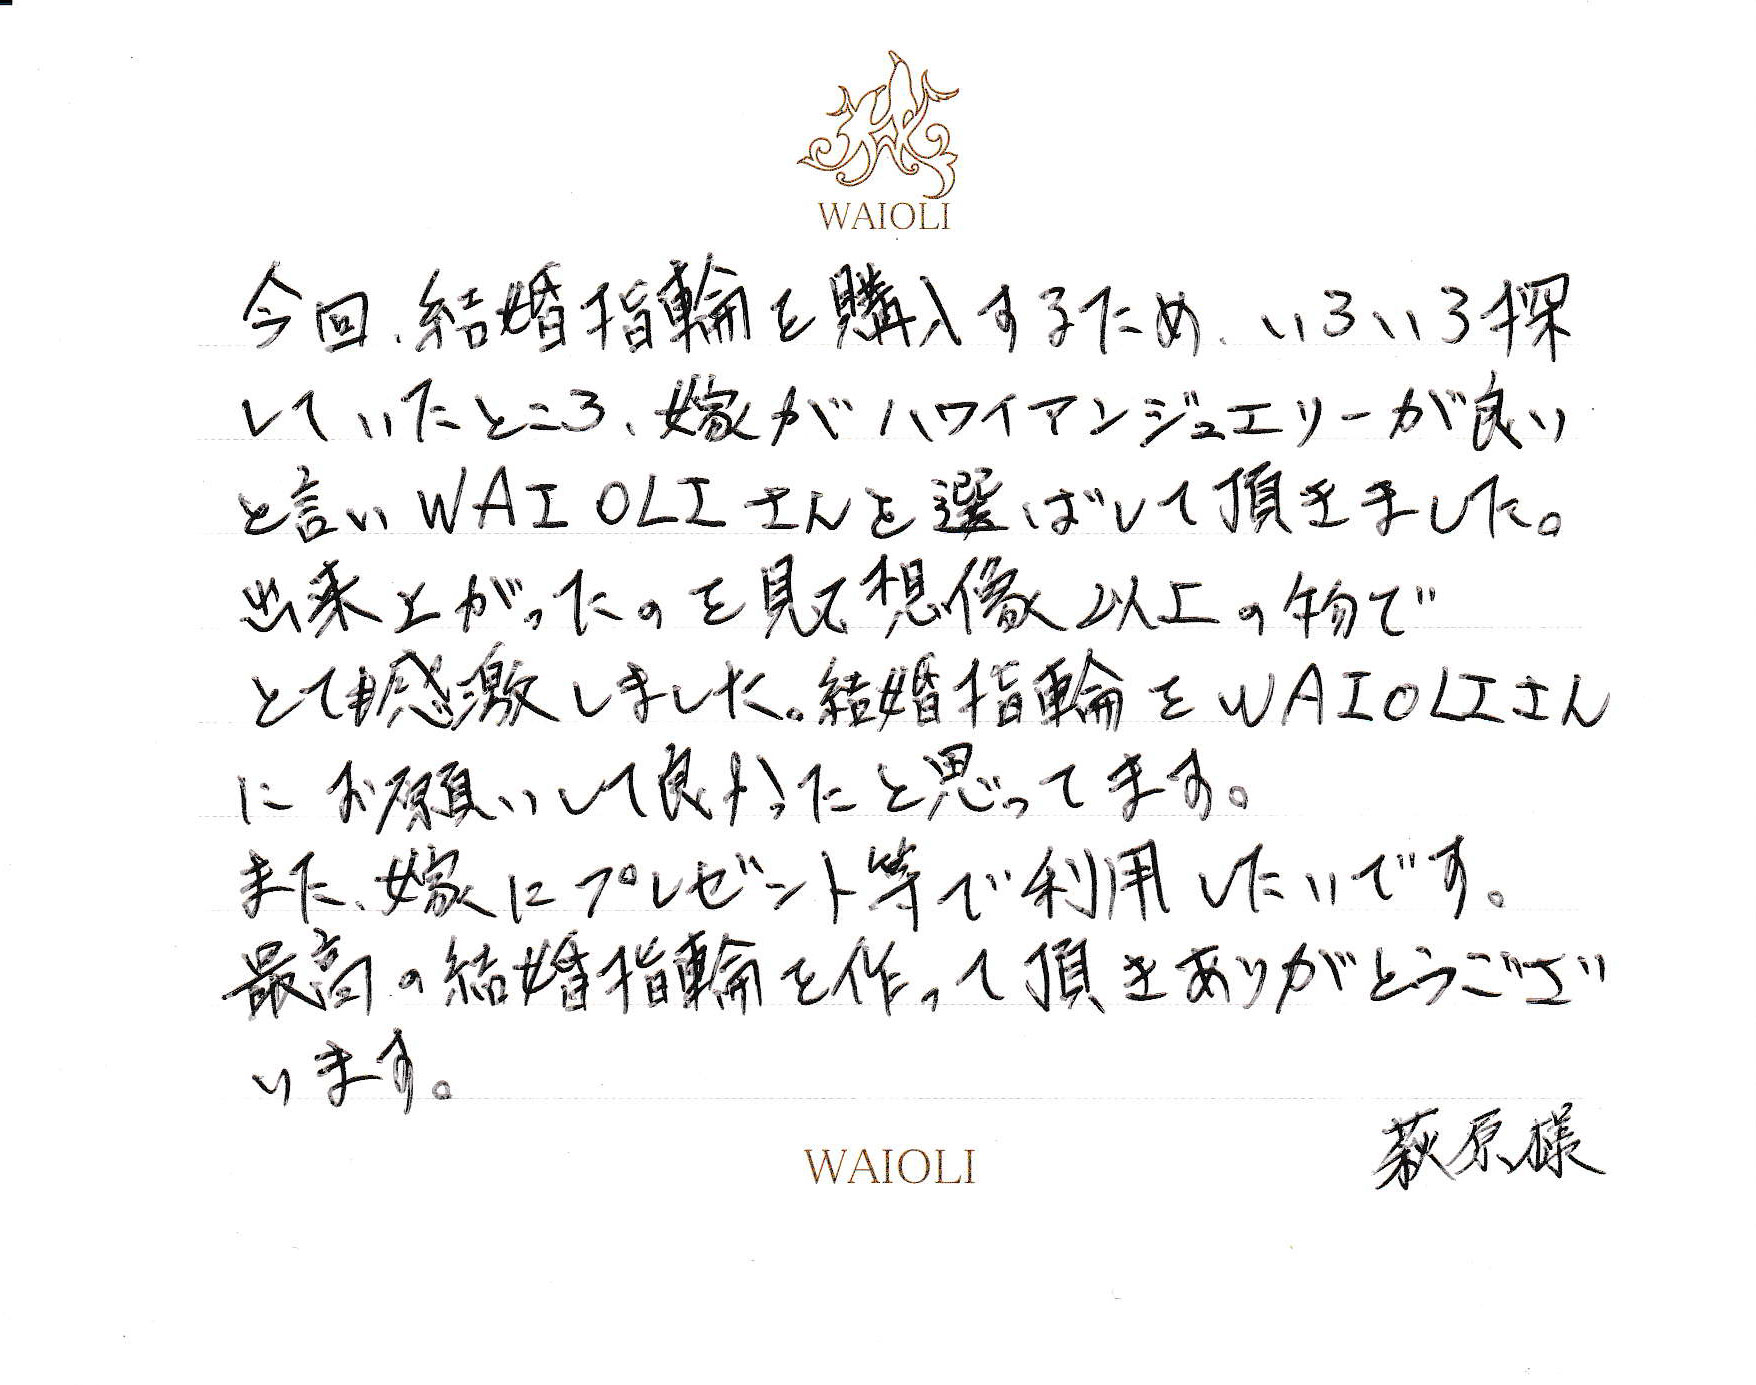 WAIOLI
今回、結婚指輪を購入するため、いろいろ探
していたところ、嫁がハワイアンジュエリーが良い
と言いWAIOLIさんを選ばして頂きました。
出来上がったのを見て想像以上の物で
とても感激しました。結婚指輪をWAIOLIさん
にお願いして良かったと思ってます。
また、嫁にプレゼント等で利用したいです。
最高の結婚指輪を作って頂きありがとうござ
います。
萩原様
WAIOLI